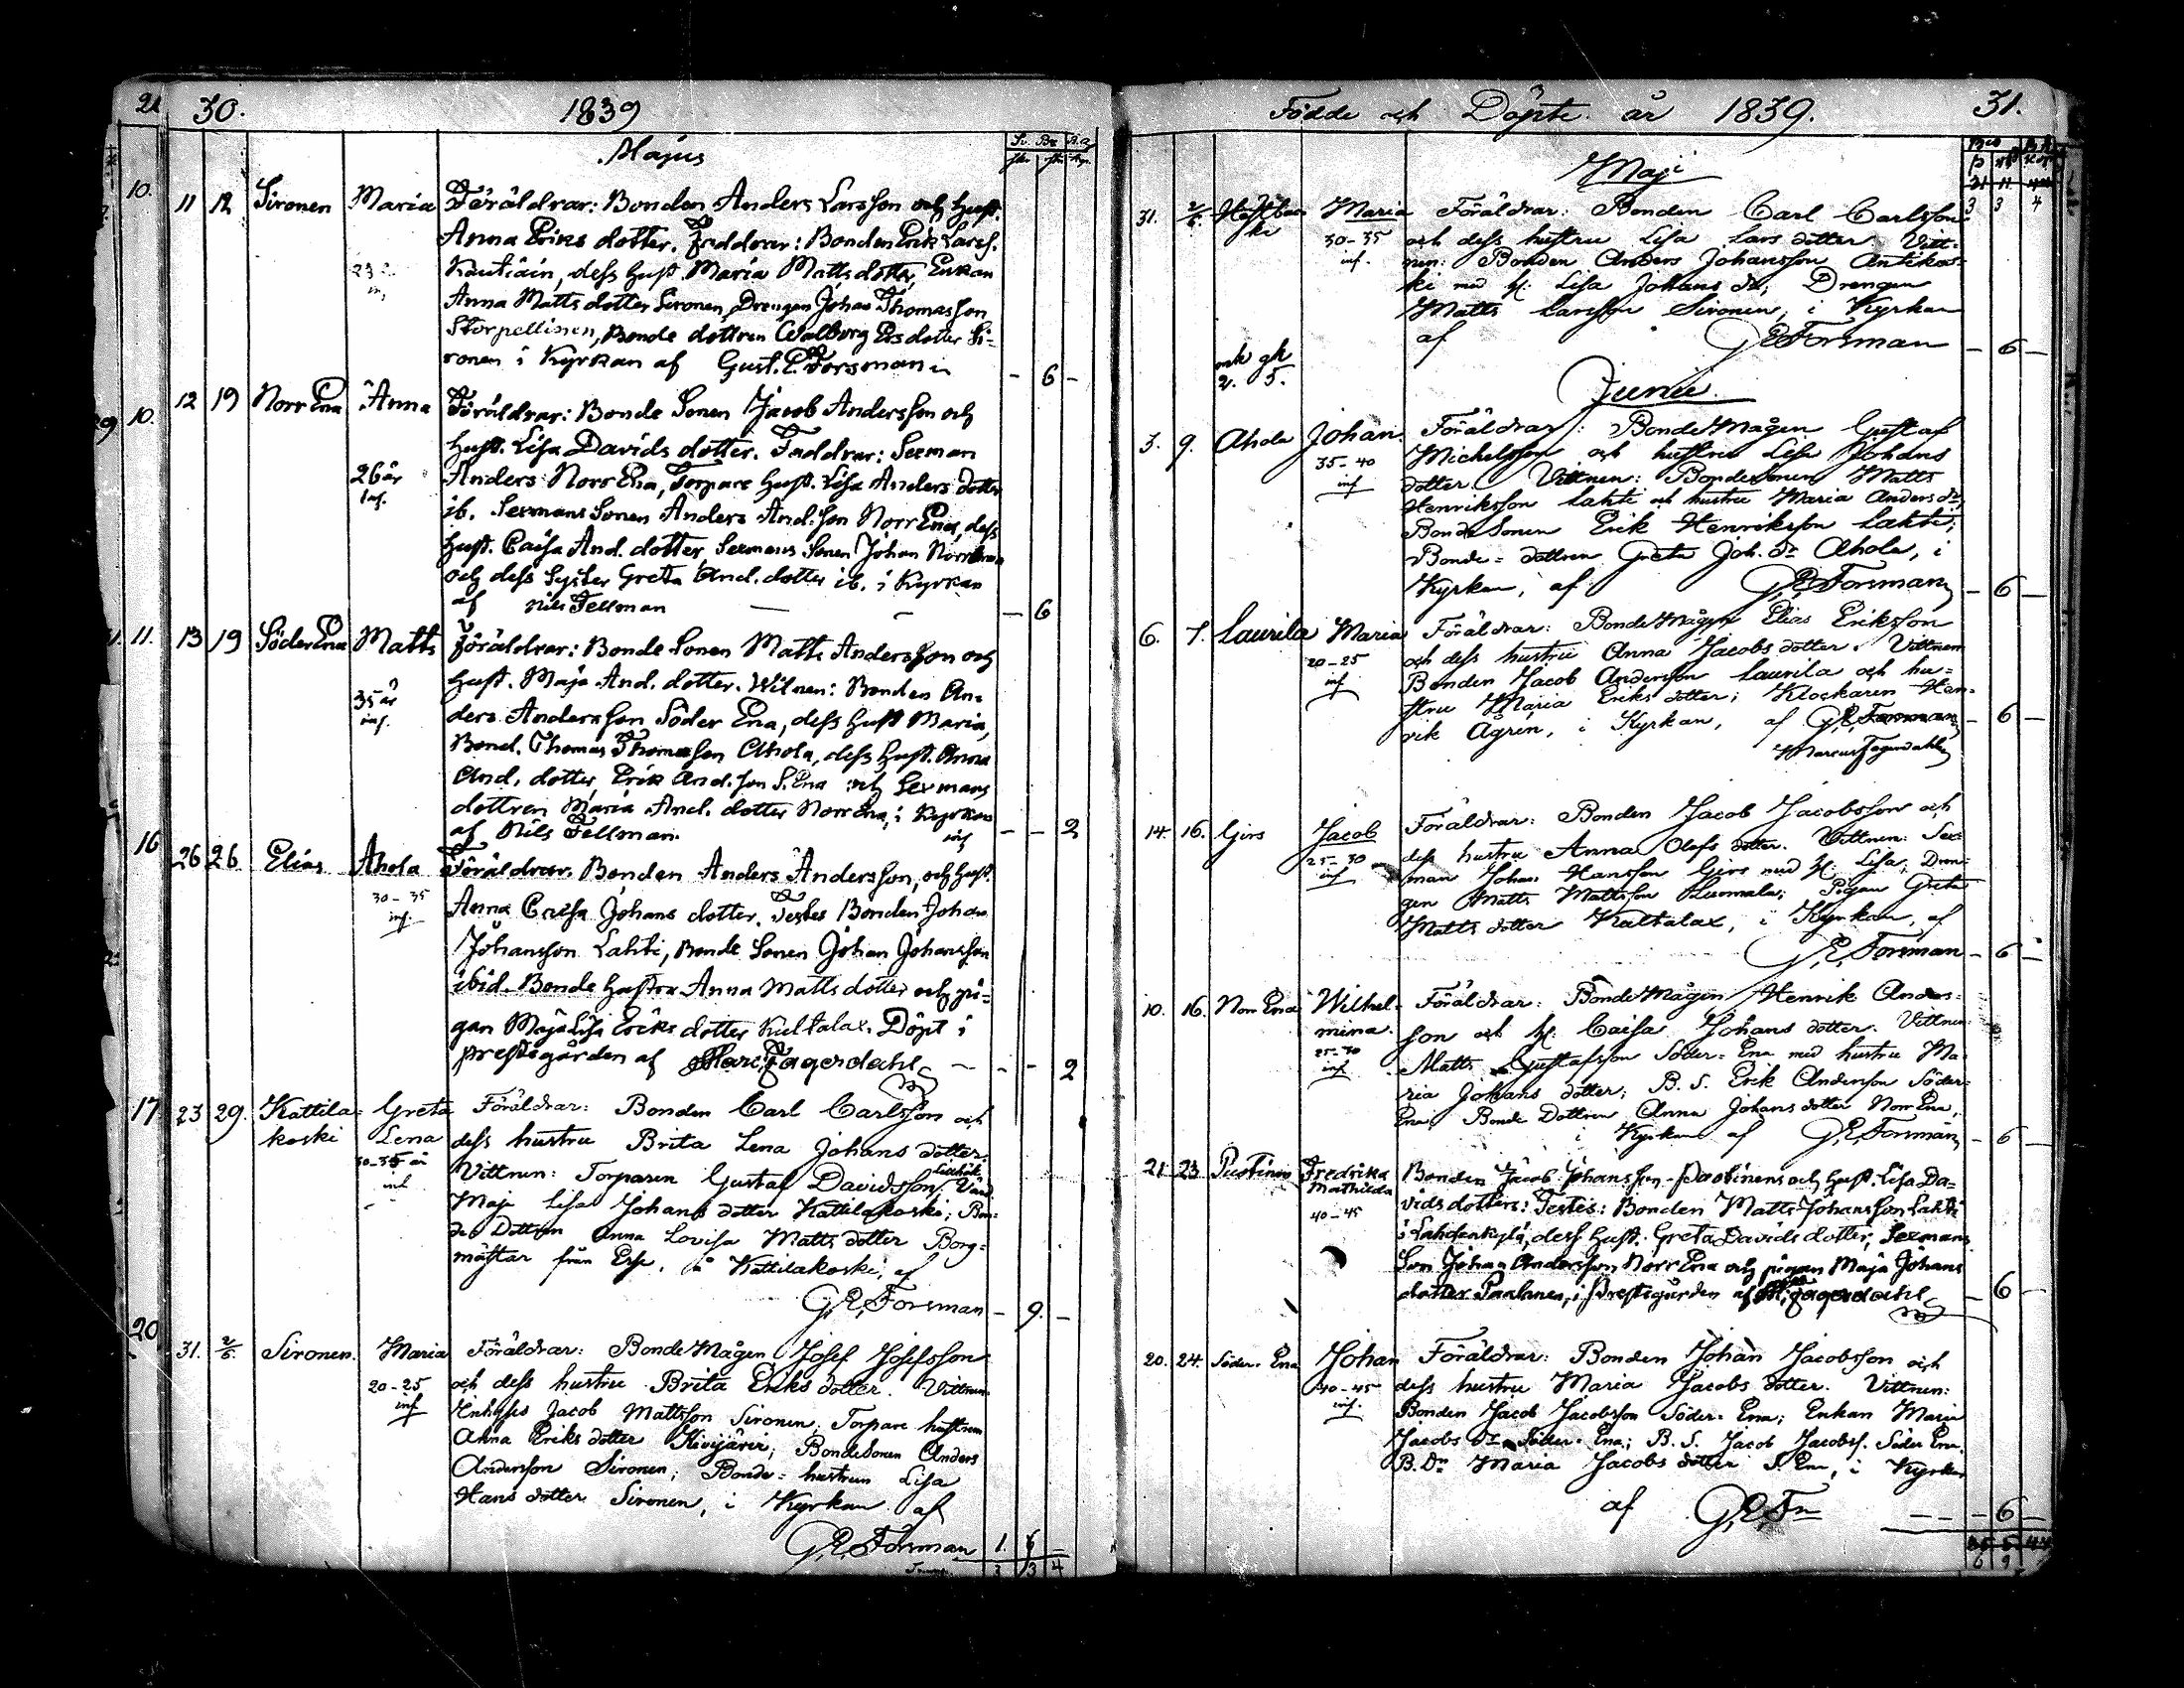 30. 1839
Majus
11 12 Sironen Maria Föräldrar: Bonden Anders Larsson och hust.
Anna Eriks dotter. Faddrar: Bonden Erik Larss.
Kautiain, dess hust. Maria Matts dotter, Enkan
Anna Matts dotter Sironen, Drengen Johan Thomasson
Storpellinen, Bonde dottren Walborg Ers dotter Si-
ronen i Kyrkan af Gust. E. Forsman
- 6 -
12 19 Norr Ena Anna Föräldrar: Bonde Sonen Jacob Andersson och
hust. Lisa Davids dotter. Faddrar: Sexman
26 år inf. Anders Norr Ena, Torpare hust. Lisa Anders dotter
ib. Sexmans Sonen Anders And.son Norr Ena, dess
hust. Caisa And. dotter, Sexmans Sonen Johan Norr Ena
och dess Syster Greta And. dotter ib. i Kyrkan
af Nils Fellman
- 6
13 19 Söder Ena Matts Föräldrar: Bonde Sonen Matts Andersson och
hust. Maja And. dotter. Witnen: Bonden An-
35 år inf. ders Andersson Söder Ena, dess hust Maria,
Bond. Thomas Thomasson Ahola, dess hust. Anna
And. dotter, Erik And.son S. Ena och Sexmans
dottren Maria And. dotter Norr Ena, i Kyrkan
af Nils Fellman.
- - 2
26 26 Elias Ahola Föräldrar. Bonden Anders Andersson, och hust.
30-35 inf. Anna Caisa Johans dotter. Testes Bonden Johan
Johansson Lahti, Bonde Sonen Johan Johansson
ibid. Bonde hustru Anna Matts dotter och pi-
gan Maja Lisa Eriks dotter Kultalax. Döpt i
prestegården af Marc. Fagerdahl
- - 2
23 29. Kattila- Greta Föräldrar: Bonden Carl Carlsson och
koski Lena dess hustru Brita Lena Johans dotter.
30-35 år inf Vittnen: Torparen Gustaf Davidsson
Maja Lisa Johans dotter Kattilakoski; Bon-
de Dottren Anna Lovisa Matts dotter Borg-
mästar från Esse, i Kattilakoski, af
G. E. Forsman - 9. -
31. 2/6. Sironen. Maria Föräldrar: BondeMågen Josef Josefsson
20-25 inf och dess hustru Brita Eriks dotter. Vittnen
Jacob Mattsson Sironen; Torpare hustrun
Anna Eriks dotter Kivijärvi; BondeSonen Anders
Andersson Sironen; Bonde-hustrun Lisa
Hans dotter Sironen, i Kyrkan af
G. E. Forsman 1. 6 -
3 3 4
Födde och Döpte år 1839. 31.
Maji
31. 2/6. Maria Föräldrar: Bonden Carl Carlsson
30-35 inf. och dess hustru Lisa Lars dotter. Vitt-
nen: Bonden Anders Johansson Antikos-
ki med h: Lisa Johans dr; Drengen
Matts Larsson Sironen, i Kyrkan
af G E Forsman - 6 -
mk gk
2. 5.
Junii
3. 9. Ahola Johan. Föräldrar: BondeMågen Gustaf
35-40 inf Michelsson och hustru Lisa Johans
dotter. Vittnen: BondeSonen Matts
Henriksson Lahti och hustru Maria Anders dr;
BondeSonen Erik Henriksson Lahti;
Bonde-dottren Greta Joh. dr Ahola, i
Kyrkan, af G. E. Forsman - 6 -
6. 7. Laurila Maria Föräldrar: BondeMågen Elias Eriksson
20-25 inf och dess hustru Anna Jacobs dotter. Vittnen
Bonden Jacob Andersson Laurila och hu-
stru Maria Eriks dotter; Klockaren Hen-
rik Ågren, i Kyrkan, af G. E. Forsman - 6 -
Marcus Fagerdahl
14. 16. Girs Jacob Föräldrar: Bonden Jacob Jacobsson och
25-30 inf dess hustru Anna Olofs dotter. Vittnen: Sex-
man Johan Hansson Girs med h: Lisa; Dren-
gen Matts Mattsson Luomala; Pigan Greta
Matts dotter Kaltalax, i Kyrkan, af
G. E. Forsman - 6 -
10. 16. Norr Ena Wilhel- Föräldrar: BondeMågen Henrik Anders-
mina. son och h: Caisa Johans dotter. Vittnen
25-30 inf Matts Gustafsson Söder-Ena med hustru Ma-
ria Johans dotter; B. S. Erik Andersson Söder-
Ena; Bonde Dottren Anna Johans dotter Norr Ena,
i Kyrkan af G. E. Forsman - 6 -
21. 23. Fredrika Bonden Jacob Johansson och hust. Lisa Da-
Mathilda vids dotters: Testes: Bonden Matts Johansson Lahti
40-45 i Lahdenkylä, dess hust. Greta Davids dotter, Sexmans
Son Johan Andersson Norr Ena och pigan Maja Johans
dotter Paalanen, i Prestegården af M. Fagerdahl - 6 -
20. 24. Söder-Ena Johan Föräldrar: Bonden Johan Jacobsson och
40-45 inf. dess hustru Maria Jacobs dotter. Vittnen:
Bonden Jacob Jacobsson Söder-Ena; Enkan Maria
Jacobs dr Söder-Ena; B. S. Jacob Jacobss. Söder Ena.
B. Dr Maria Jacobs dotter S. Ena, i Kyrkan
af G. E. Fn - 6 -